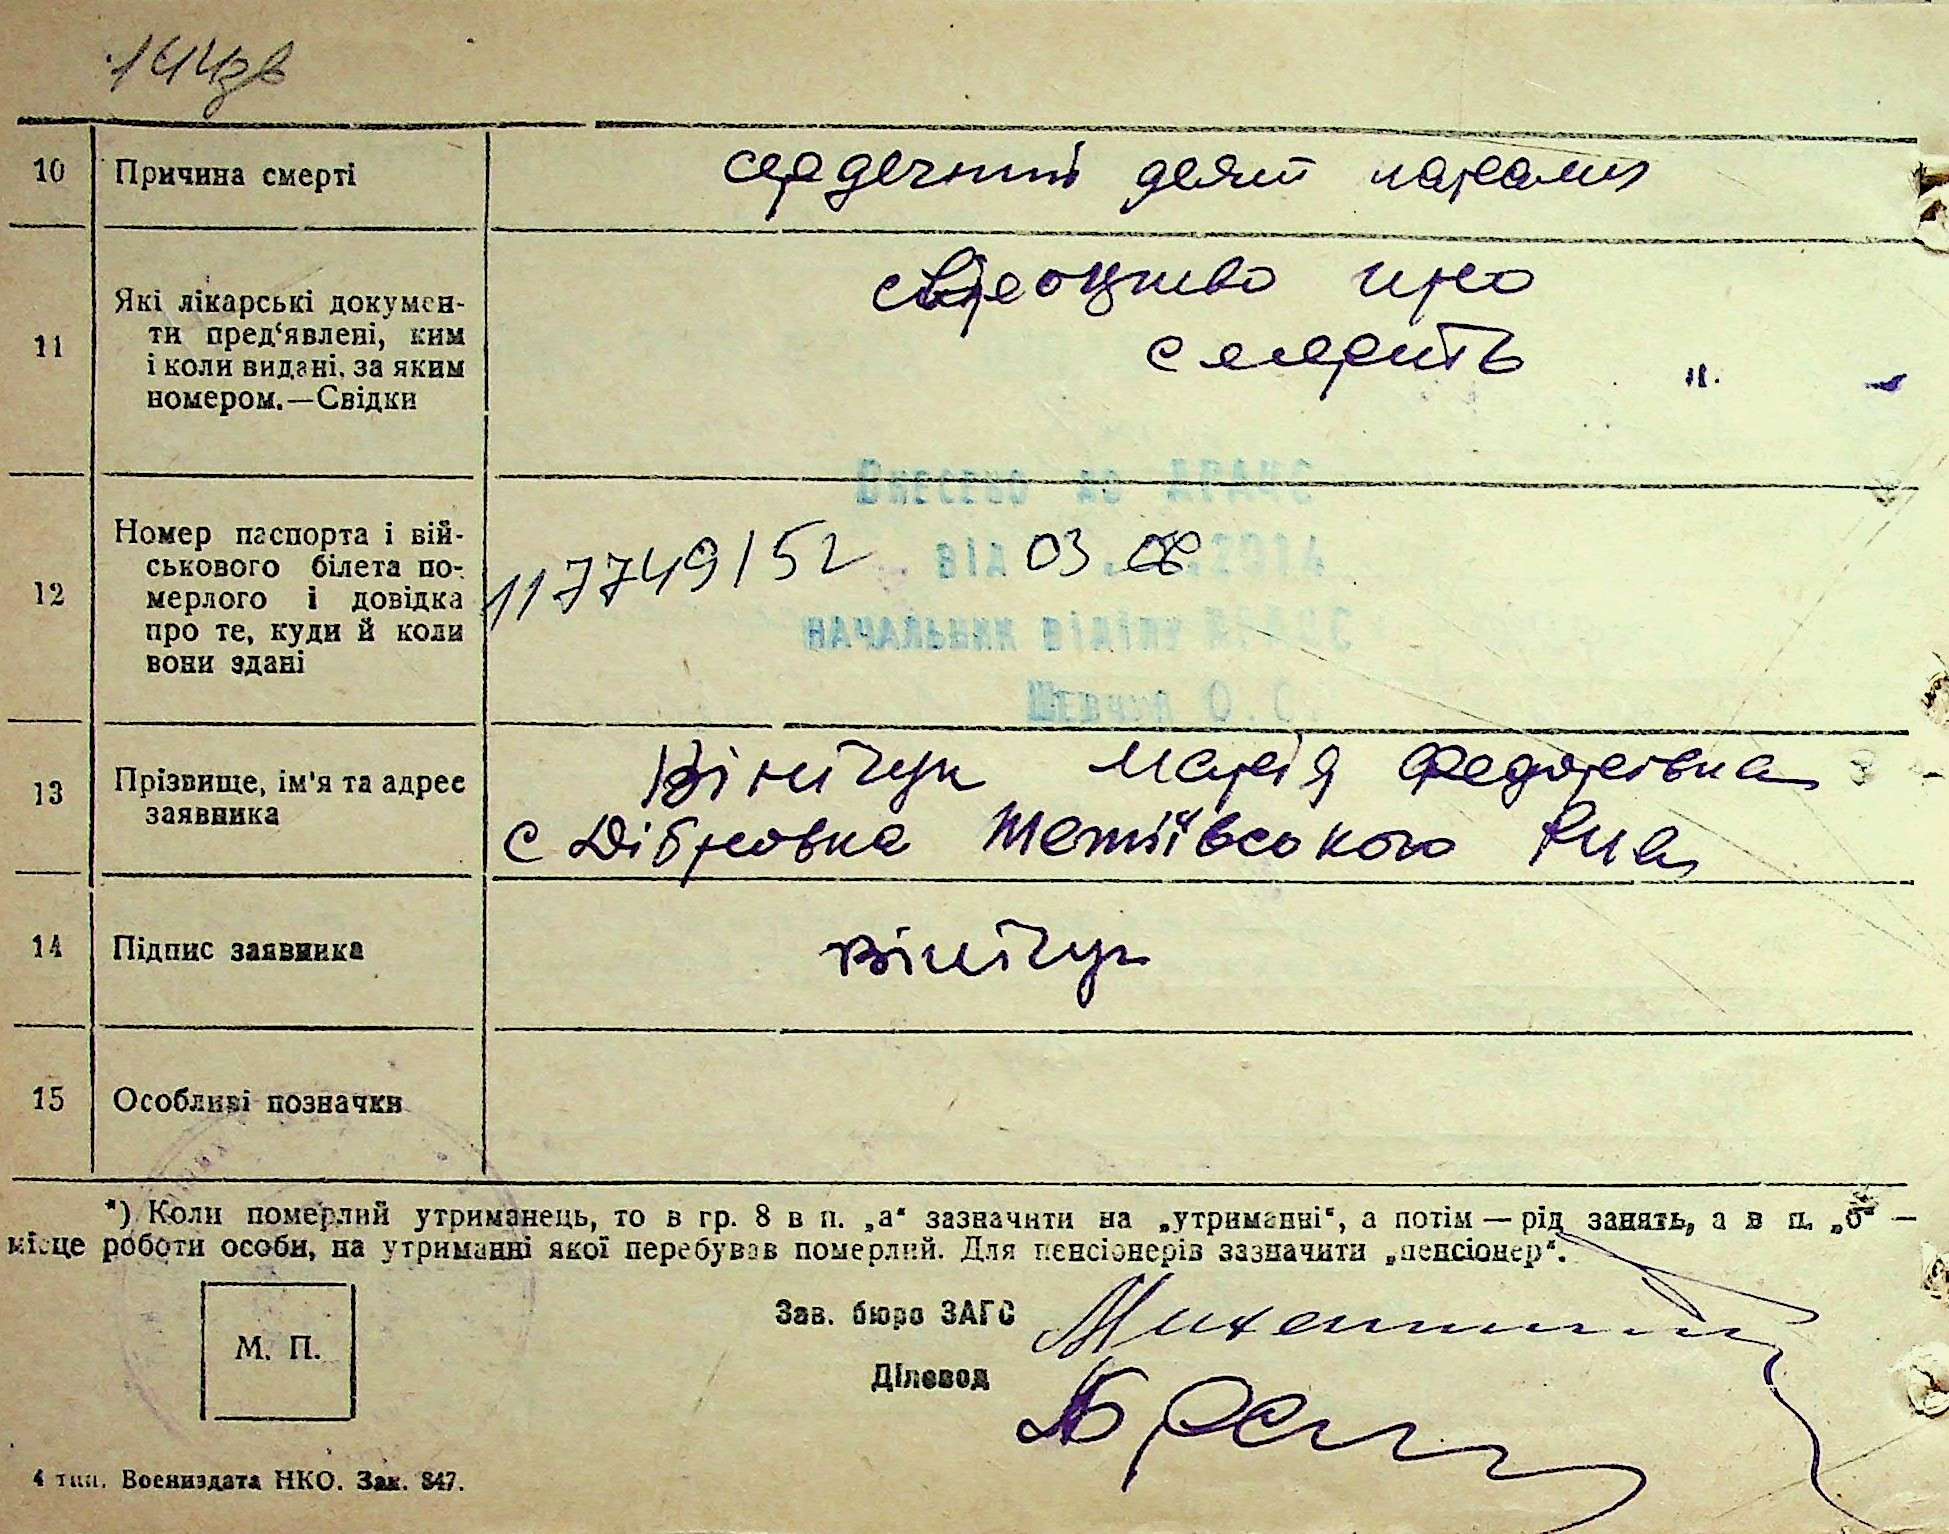 144зв
10 Причина смерті
11 Які лікарські докумен-
ти пред'явлені, ким
і коли видані, за яким
номером.—Свідки
свідоцтво про
смерить
12 Номер паспорта і вій-
ськового білета по-
мерлого і довідка
про те, куди й коли
вони здані
Внесено до ДРАЦС
від 03.08.2014
начальник відділу ДРАЦС
Шевчук О.С.
11774915 2
13 Прізвище, ім'я та адрес
заявника
Вінічук Марія Федорівна
с Дібрівка Тетіївського р-на
14 Підпис заявника
Вінічук
15 Особливі позначки
*) Коли померлий утриманець, то в гр. 8 в п. „а“ зазначити на „утриманні“, а потім — рід занять, а в п. „б“ —
місце роботи особи, на утриманні якої перебував померлий. Для пенсіонерів зазначити „пенсіонер“.
М. П.
Зав. бюро ЗАГС
Діловод
4 тип. Воениздата НКО. Зак. 847.